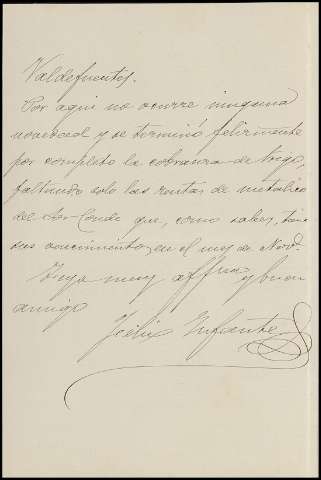 Valdefuentes.
Por aqui no ocurre ninguna
novedad y se terminó felizmente
por completo la cobranza de trigo,
faltando solo las rentas de metalico
del Sor Conde que, como sabes, tie
sus vencimientos en el mes de Novb.
Tuyo muy affmo y buen
amigo
Felix Infante